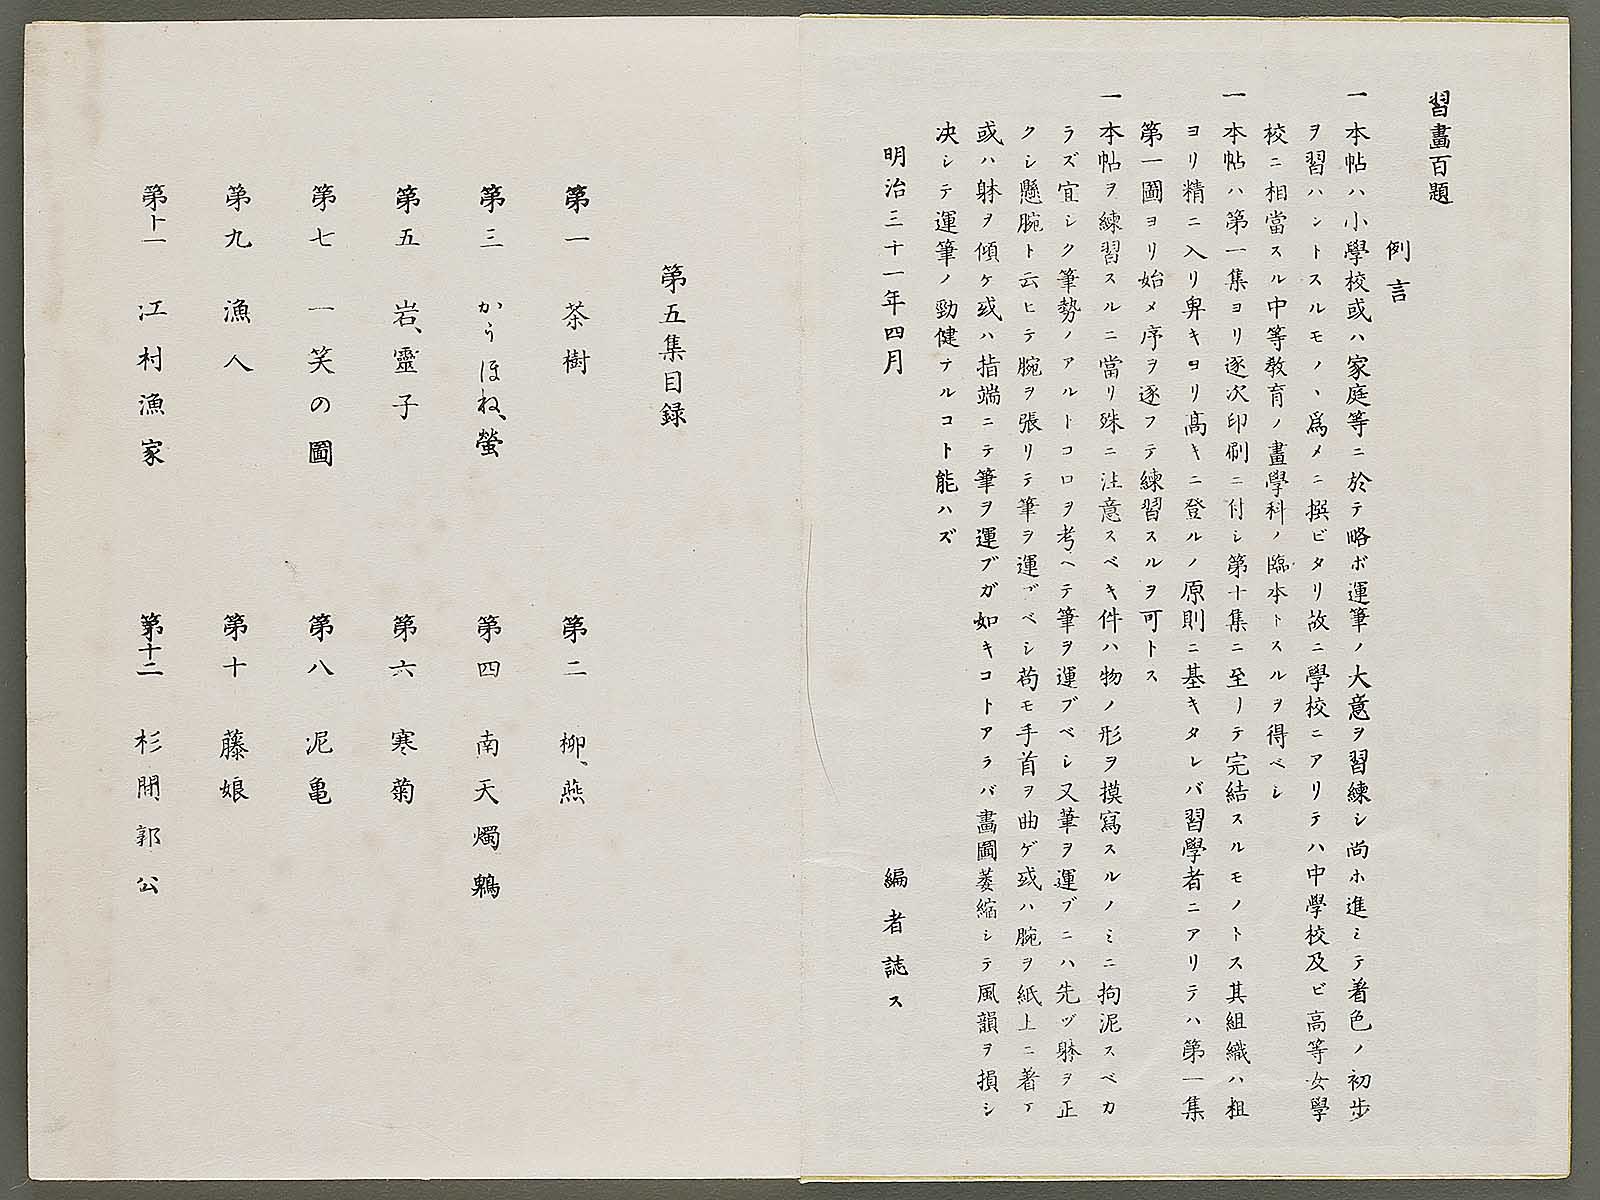 習畫百題
例言
一本帖ハ小學校或ハ家庭等ニ於テ略ボ運筆ノ大意ヲ習練シ尚ホ進ミテ着色ノ初歩
ヲ習ハントスルモノヽ爲メニ撰ビタリ故ニ學校ニアリテハ中學校及ビ高等女學
校ニ相當スル中等教育ノ畫學科ノ臨本トスルヲ得ベシ
一本帖ハ第一集ヨリ逐次印刷ニ付シ第十集ニ至リテ完結スルモノトス其組織ハ粗
ヨリ精ニ入リ卑キヨリ高キニ登ルノ原則ニ基キタレバ習學者ニアリテハ第一集
第一圖ヨリ始メ序ヲ逐フテ練習スルヲ可トス
一本帖ヲ練習スルニ當リ殊ニ注意スベキ件ハ物ノ形ヲ摸寫スルノミニ拘泥スベカ
ラズ宜シク筆勢ノアルトコロヲ考ヘテ筆ヲ運ブベシ又筆ヲ運ブニハ先ヅ躰ヲ正
クシ懸腕ト云ヒテ腕ヲ張リテ筆ヲ運ブベシ苟モ手首ヲ曲ゲ或ハ腕ヲ紙上ニ着ケ
或ハ躰ヲ傾ケ或ハ指端ニテ筆ヲ運ブガ如キコトアラバ畫圖萎縮シテ風韻ヲ損シ
决シテ運筆ノ勁健ナルコト能ハズ
明治三十一年四月
編者誌ス
第五集目録
第一 茶樹
第二 柳、燕
第三 かうほね、螢
第四 南天燭鵯
第五 岩、靈子
第六 寒菊
第七 一笑の圖
第八 泥亀
第九 漁人
第十 藤娘
第十一 江村漁家
第十二 杉間郭公